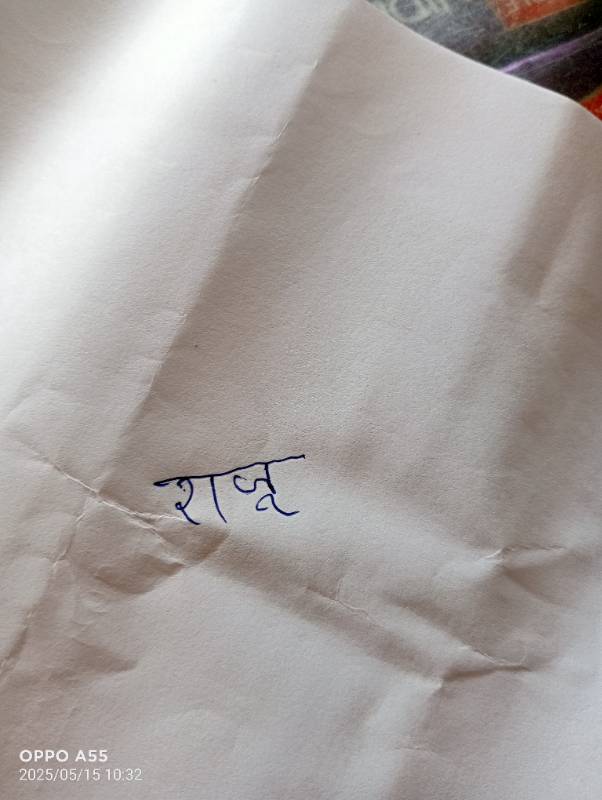 राजू
OPPO A55
2025/05/15 10:32